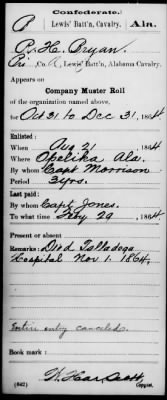 (Confederate.)
B Lewis' Batt'n, Cavalry. Ala.
P. H. Bryan
Pri, Co. , Lewis' Batt'n, Alabama Cavalry.
Appears on
Company Muster Roll
of the organization named above,
for Oct 31 to Dec 31, 1864
Enlisted:
When Aug 21 , 1864
Where Opelika Ala.
By whom Capt Morrison
Period 3yrs.
Last paid:
By whom Capt Jones.
To what time Feby 29 , 1864
Present or absent
Remarks: Died Talladega
Hospital Nov. 1. 1864.
Entire entry canceled.
Book mark:
(642) Copyist.